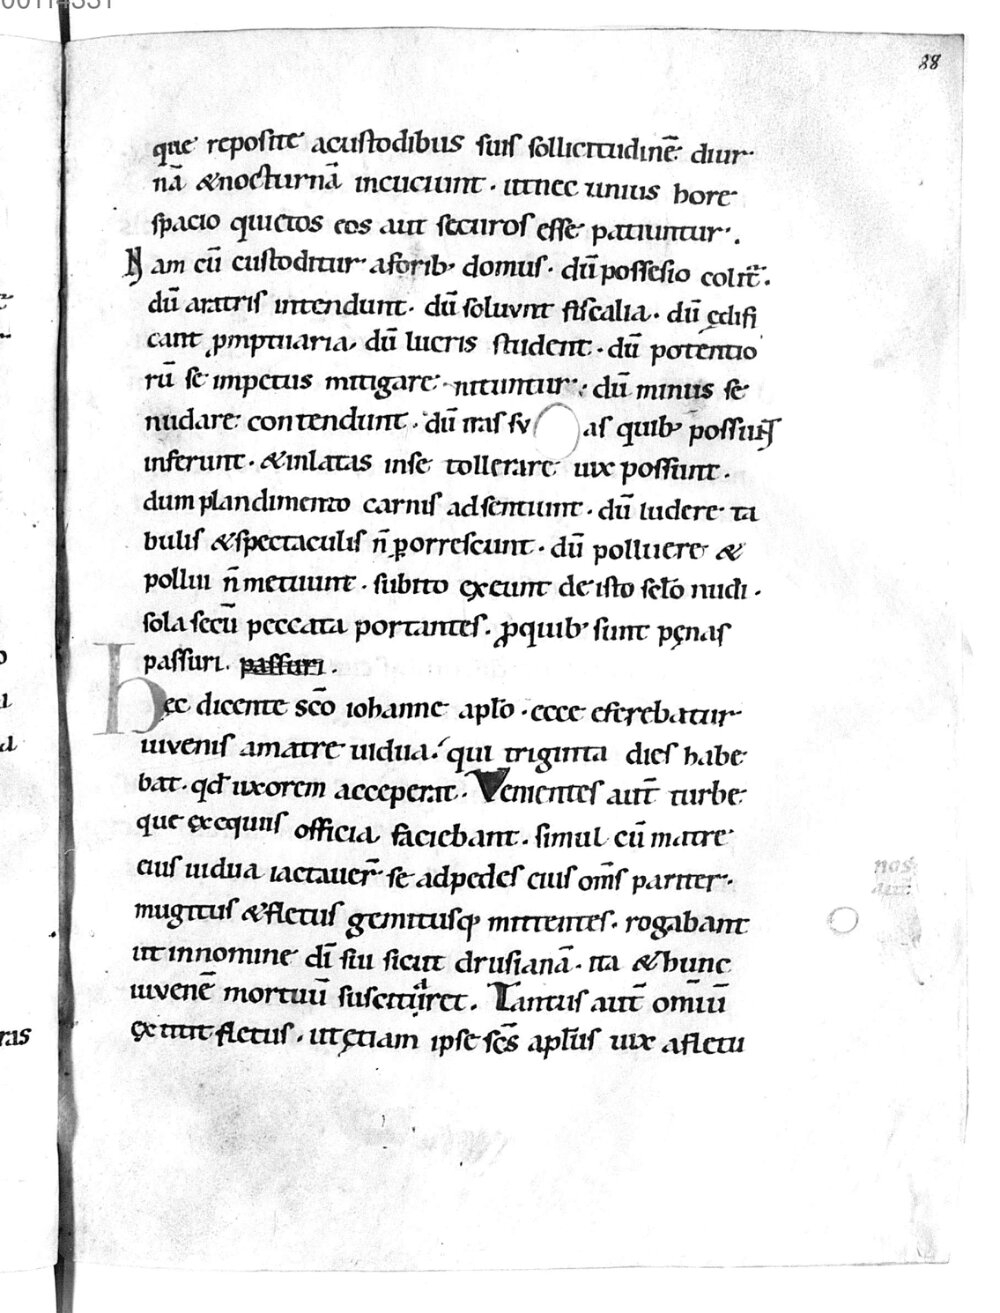 38
que reposite acustodibus suis sollicitudinē diur
nā &nocturnā incuciunt. utnec unius hore
spacio quietos eos aut securos esse patiuntur.
Nam cū custoditur aforib; domus. dū possesio colit̄.
dū aratris intendunt. dū soluunt fiscalia. dū ędifi
cant ꝓmptuaria, dū lucris student. dū potentio
rū se impetus mitigare nituntur; dū minus se
nudare contendunt. dū iras su as quib; possun̄t
inferunt. &inlatas inse tollerare uix possunt.
dum plandimento carnis adsentiunt. dū ludere ta
bulis &spectaculis n̄ ꝑorrescunt. dū polluere &
pollui n̄ metuunt. subito exeunt de isto sclō nudi.
sola secū peccata portantes. ꝓquib; sunt pęnas
passuri. passuri.
Hęc dicente scō iohanne aplō. ecce eferebatur
iuvenis amatre uidua. qui triginta dies habe
bat. qđ uxorem acceperat. Venientes aut̄ turbe
que exequiis officia faciebant. simul cū matre
eius uidua iactauer̄ se adpedes eius om̄s pariter.
mugitus &fletus gemitusq; mittentes. rogabant
ut innomine dī sui sicut drusianā. ita &hunc
iuvenē mortuū suscitaret. Tantus aut̄ omiū
extitit fletus. ut ętiam ipse scs̄ aplūs uix afletu